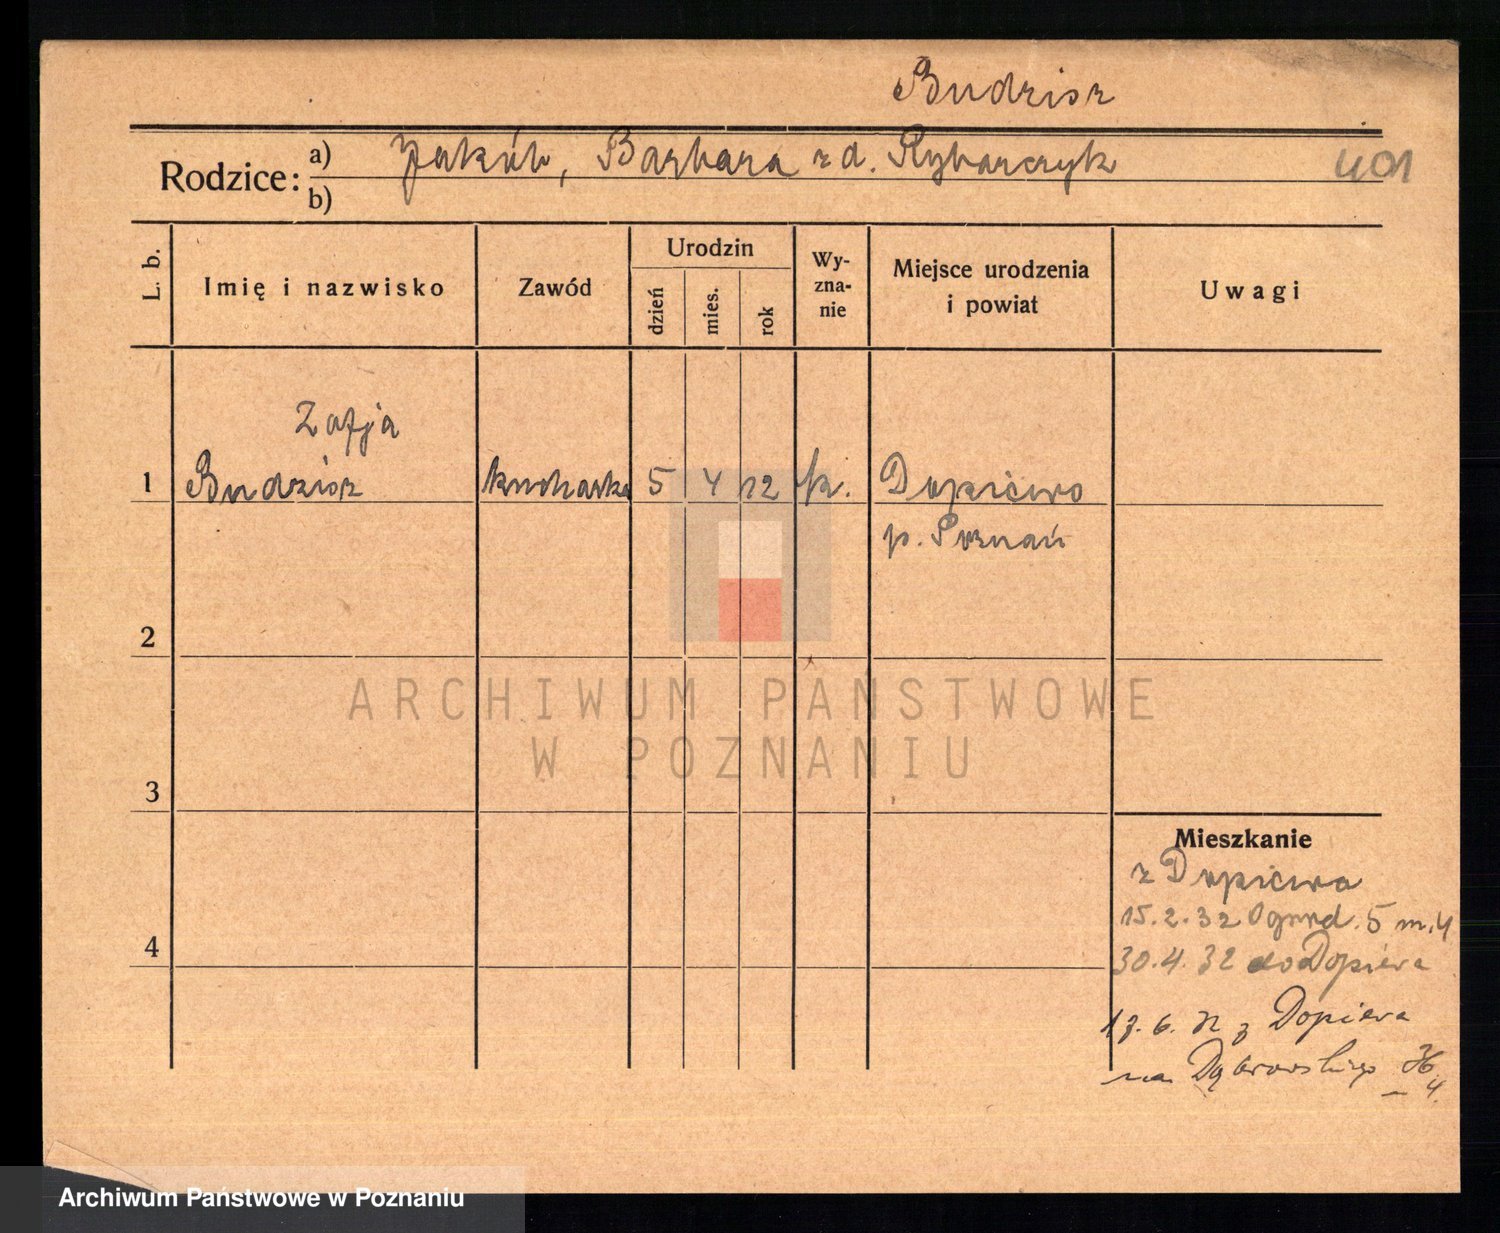 Budzisz
Rodzice: a) Jakób, Barbara z d. Rybarczyk
b)
401
L. b.
Imię i nazwisko
Zawód
Urodzin
dzień
mies.
rok
Wy-
zna-
nie
Miejsce urodzenia
i powiat
Uwagi
Zofja
1 Budzisz kucharka 5 4 12 k. Dopiewo
p. Poznań
2
ARCHIWUM PAŃSTWOWE
W POZNANIU
3
Mieszkanie
z Dopiewa
15.2.32 Ogrod. 5 m. 4
4
30.4.32 do Dopiewa
z Dopiewa
na Dąbrowskiego
Archiwum Państwowe w Poznaniu